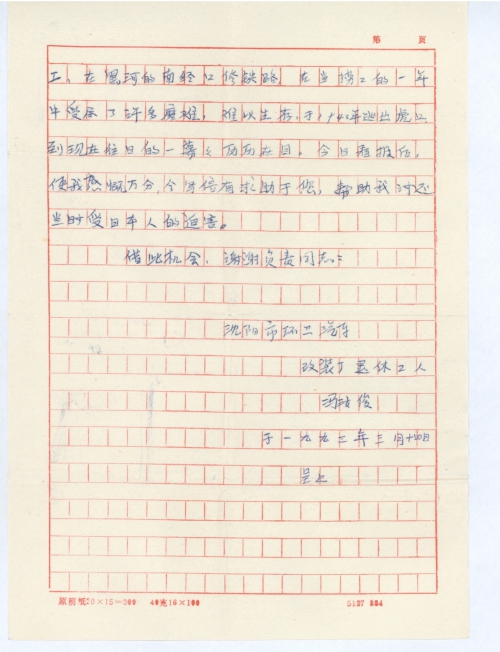 第 页
工。在黑河的南 修铁路 在当捞工的一年
中受尽了许多磨难,难以生存,于1940年逃出虎口,
到现在往日的一幕幕历历在目。今日看报后,
使我感慨万分,今 求助于您,帮助我讨还
当时受日本人的迫害。
借此机会,谢谢负责同志
沈阳市环卫汽车
改装厂退休工人
俊
于一九九二年三月十四日
呈上
原稿纸20×15=300 40克16×100 5127 884